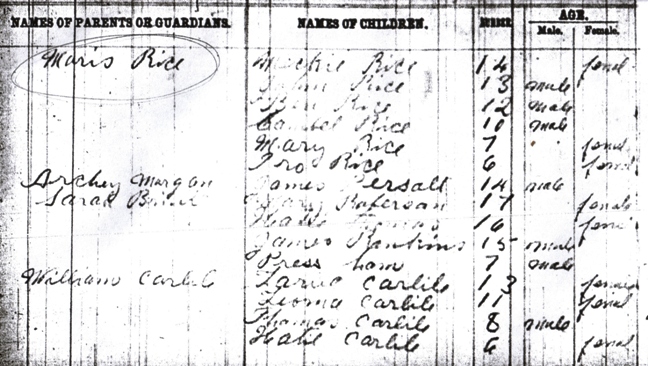 NAMES OF PARENTS OR GUARDIANS. NAMES OF CHILDREN. NUMBER AGE.
Male. Female.
Maris Rice Mackie Rice 14 femal
Rice 13 male
Ben Rice 12 male
Cambel Rice 10 male
Mary Rice 7 femal
Pro Rice 6 femal
Archey Morgan James Persalt 14 male
Sarah 17 female
Thomas 16
James Rankins 15 male
Press 7 male
William Carlile Carlile 13 female
Leoma Carlile 11 femal
Thomas Carlile 8 male
Katie Carlile 6 femal